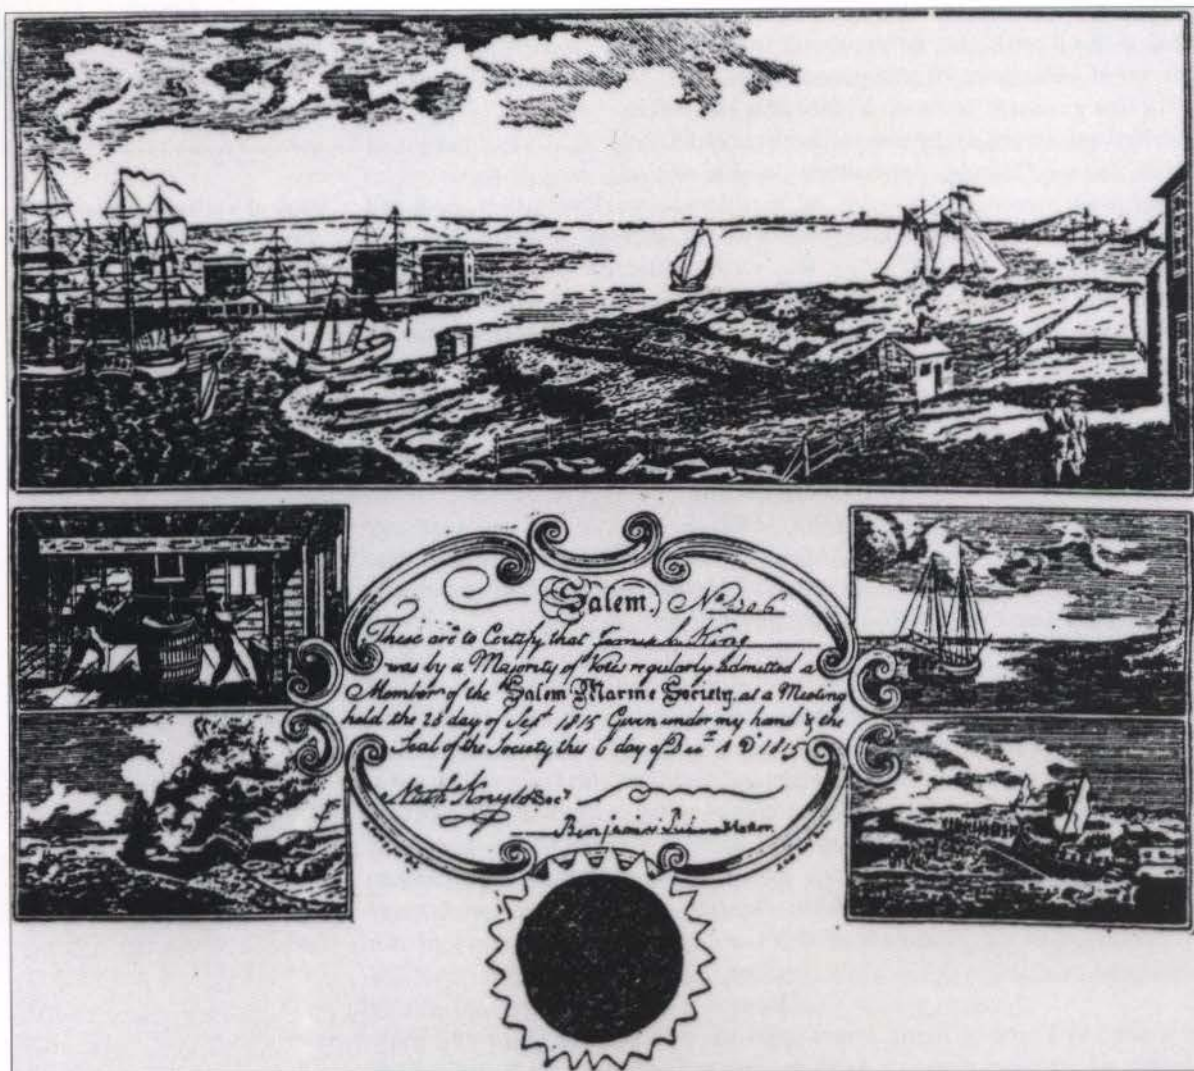 Salem, No 306
These are to Certify that James C. King
was by a Majority of Votes regularly admitted a
Member of the Salem Marine Society, at a Meeting
held the 28 day of Sept 1815 Given under my hand & the
Seal of the Society this 6 day of Decr A D 1815
Secy
Benjamin Master.